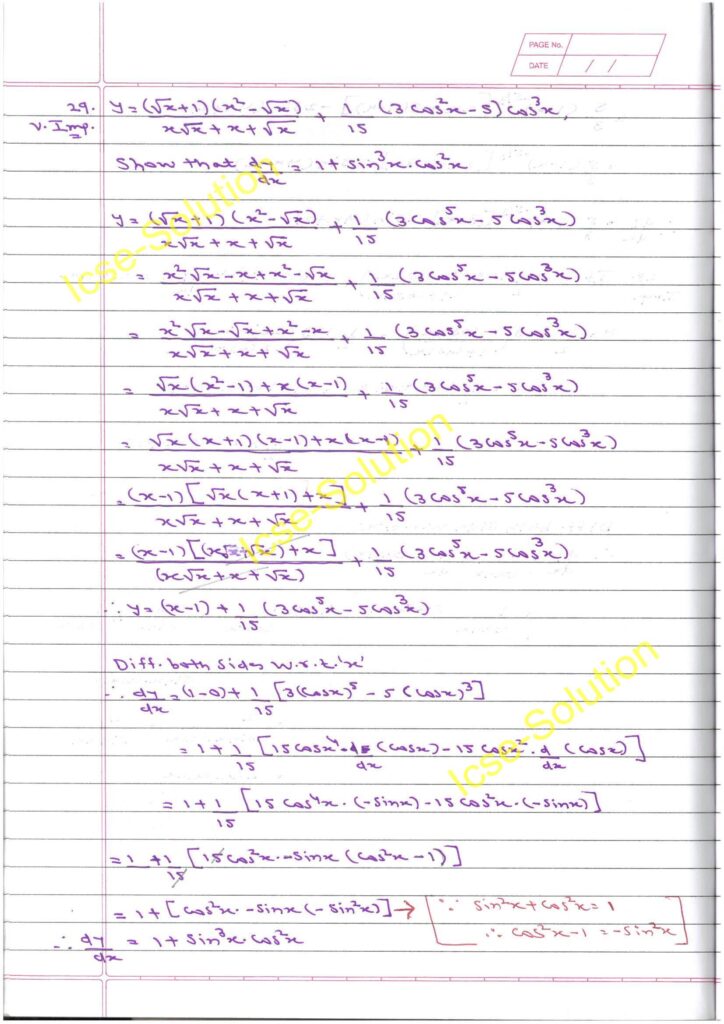 PAGE No.
DATE / /
29. y = (√x+1)(x²-√x) / x√x + x + √x + 1/15 (3cos²x - 5) cos³x,
v. Imp.
Show that dy/dx = 1 + sin³x·cos²x
y = (√x+1)(x²-√x) / x√x + x + √x + 1/15 (3cos⁵x - 5cos³x)
= x²√x - x + x² - √x / x√x + x + √x + 1/15 (3cos⁵x - 5cos³x)
= x²√x - √x + x² - x / x√x + x + √x + 1/15 (3cos⁵x - 5cos³x)
= √x(x²-1) + x(x-1) / x√x + x + √x + 1/15 (3cos⁵x - 5cos³x)
= √x(x+1)(x-1) + x(x-1) / x√x + x + √x + 1/15 (3cos⁵x - 5cos³x)
= (x-1)[√x(x+1)+x] / x√x + x + √x + 1/15 (3cos⁵x - 5cos³x)
= (x-1)[(x√x+√x)+x] / (x√x + x + √x) + 1/15 (3cos⁵x - 5cos³x)
∴ y = (x-1) + 1/15 (3cos⁵x - 5cos³x)
Diff. both sides w.r.t. 'x'
∴ dy/dx = (1-0) + 1/15 [3(cosx)⁵ - 5(cosx)³]
= 1 + 1/15 [15cosx⁴·d/dx (cosx) - 15cosx²·d/dx (cosx)]
= 1 + 1/15 [15cos⁴x·(-sinx) - 15cos²x·(-sinx)]
= 1 + 1/15 [15cos²x·-sinx (cos²x - 1)]
= 1 + [cos²x·-sinx(-sin²x)] → [∵ sin²x + cos²x = 1
∴ cos²x - 1 = -sin²x]
∴ dy/dx = 1 + sin³x·cos²x
Icse-Solution
Icse-Solution
Icse-Solution